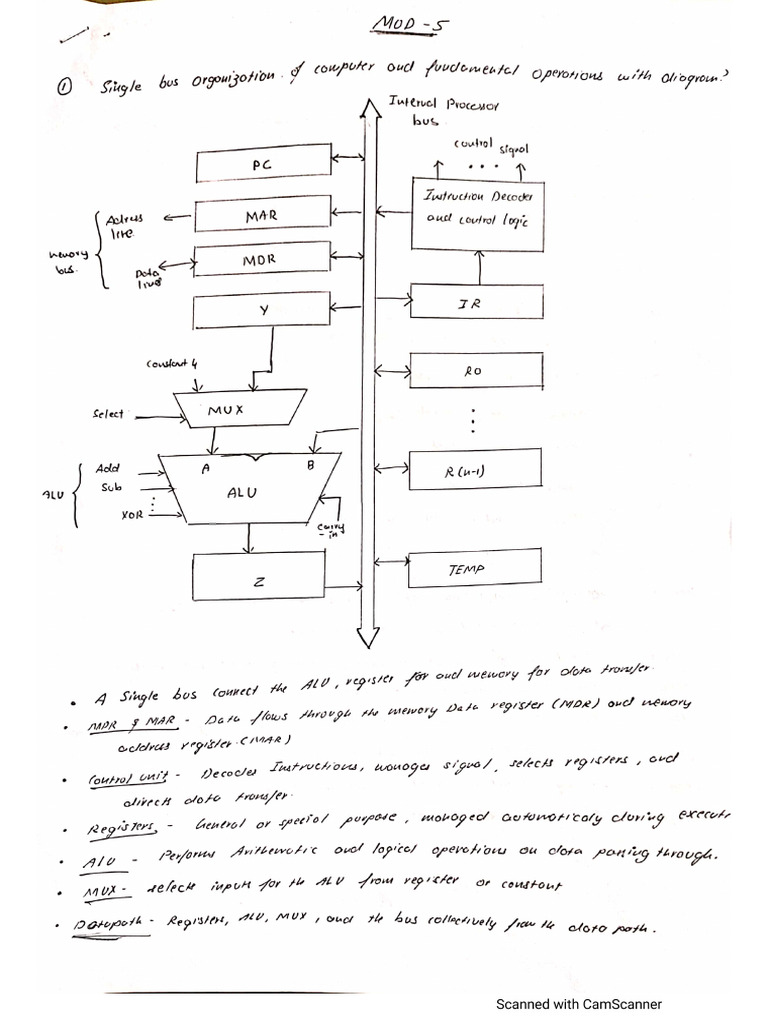 MOD - 5
① Single bus organization of computer and fundamental operations with diagram?
Internal Processor
bus
control signal
...
PC
Instruction Decoder
and control logic
Adress
line
MAR
memory
bus.
MDR
Data
lines
Y
IR
Constant 4
R0
Select
MUX
⋮
A B
ALU
Add
Sub
⋮
XOR
ALU
R(n-1)
Carry
-in
Z
TEMP
• A Single bus connect the ALU, register for and memory for data transfer.
• MDR & MAR - Data flows through the memory Data register (MDR) and memory
address register (MAR)
• Control unit - Decodes Instructions, manages signal, selects registers, and
directs data transfer.
• Registers - General or special purpose, managed automaticaly during execute
• ALU - Performs Arithematic and logical operations on data passing through.
• MUX - selects inputs for the ALU from register or constant
• Datapath - Registers, ALU, MUX, and the bus collectively from the data path.
Scanned with CamScanner